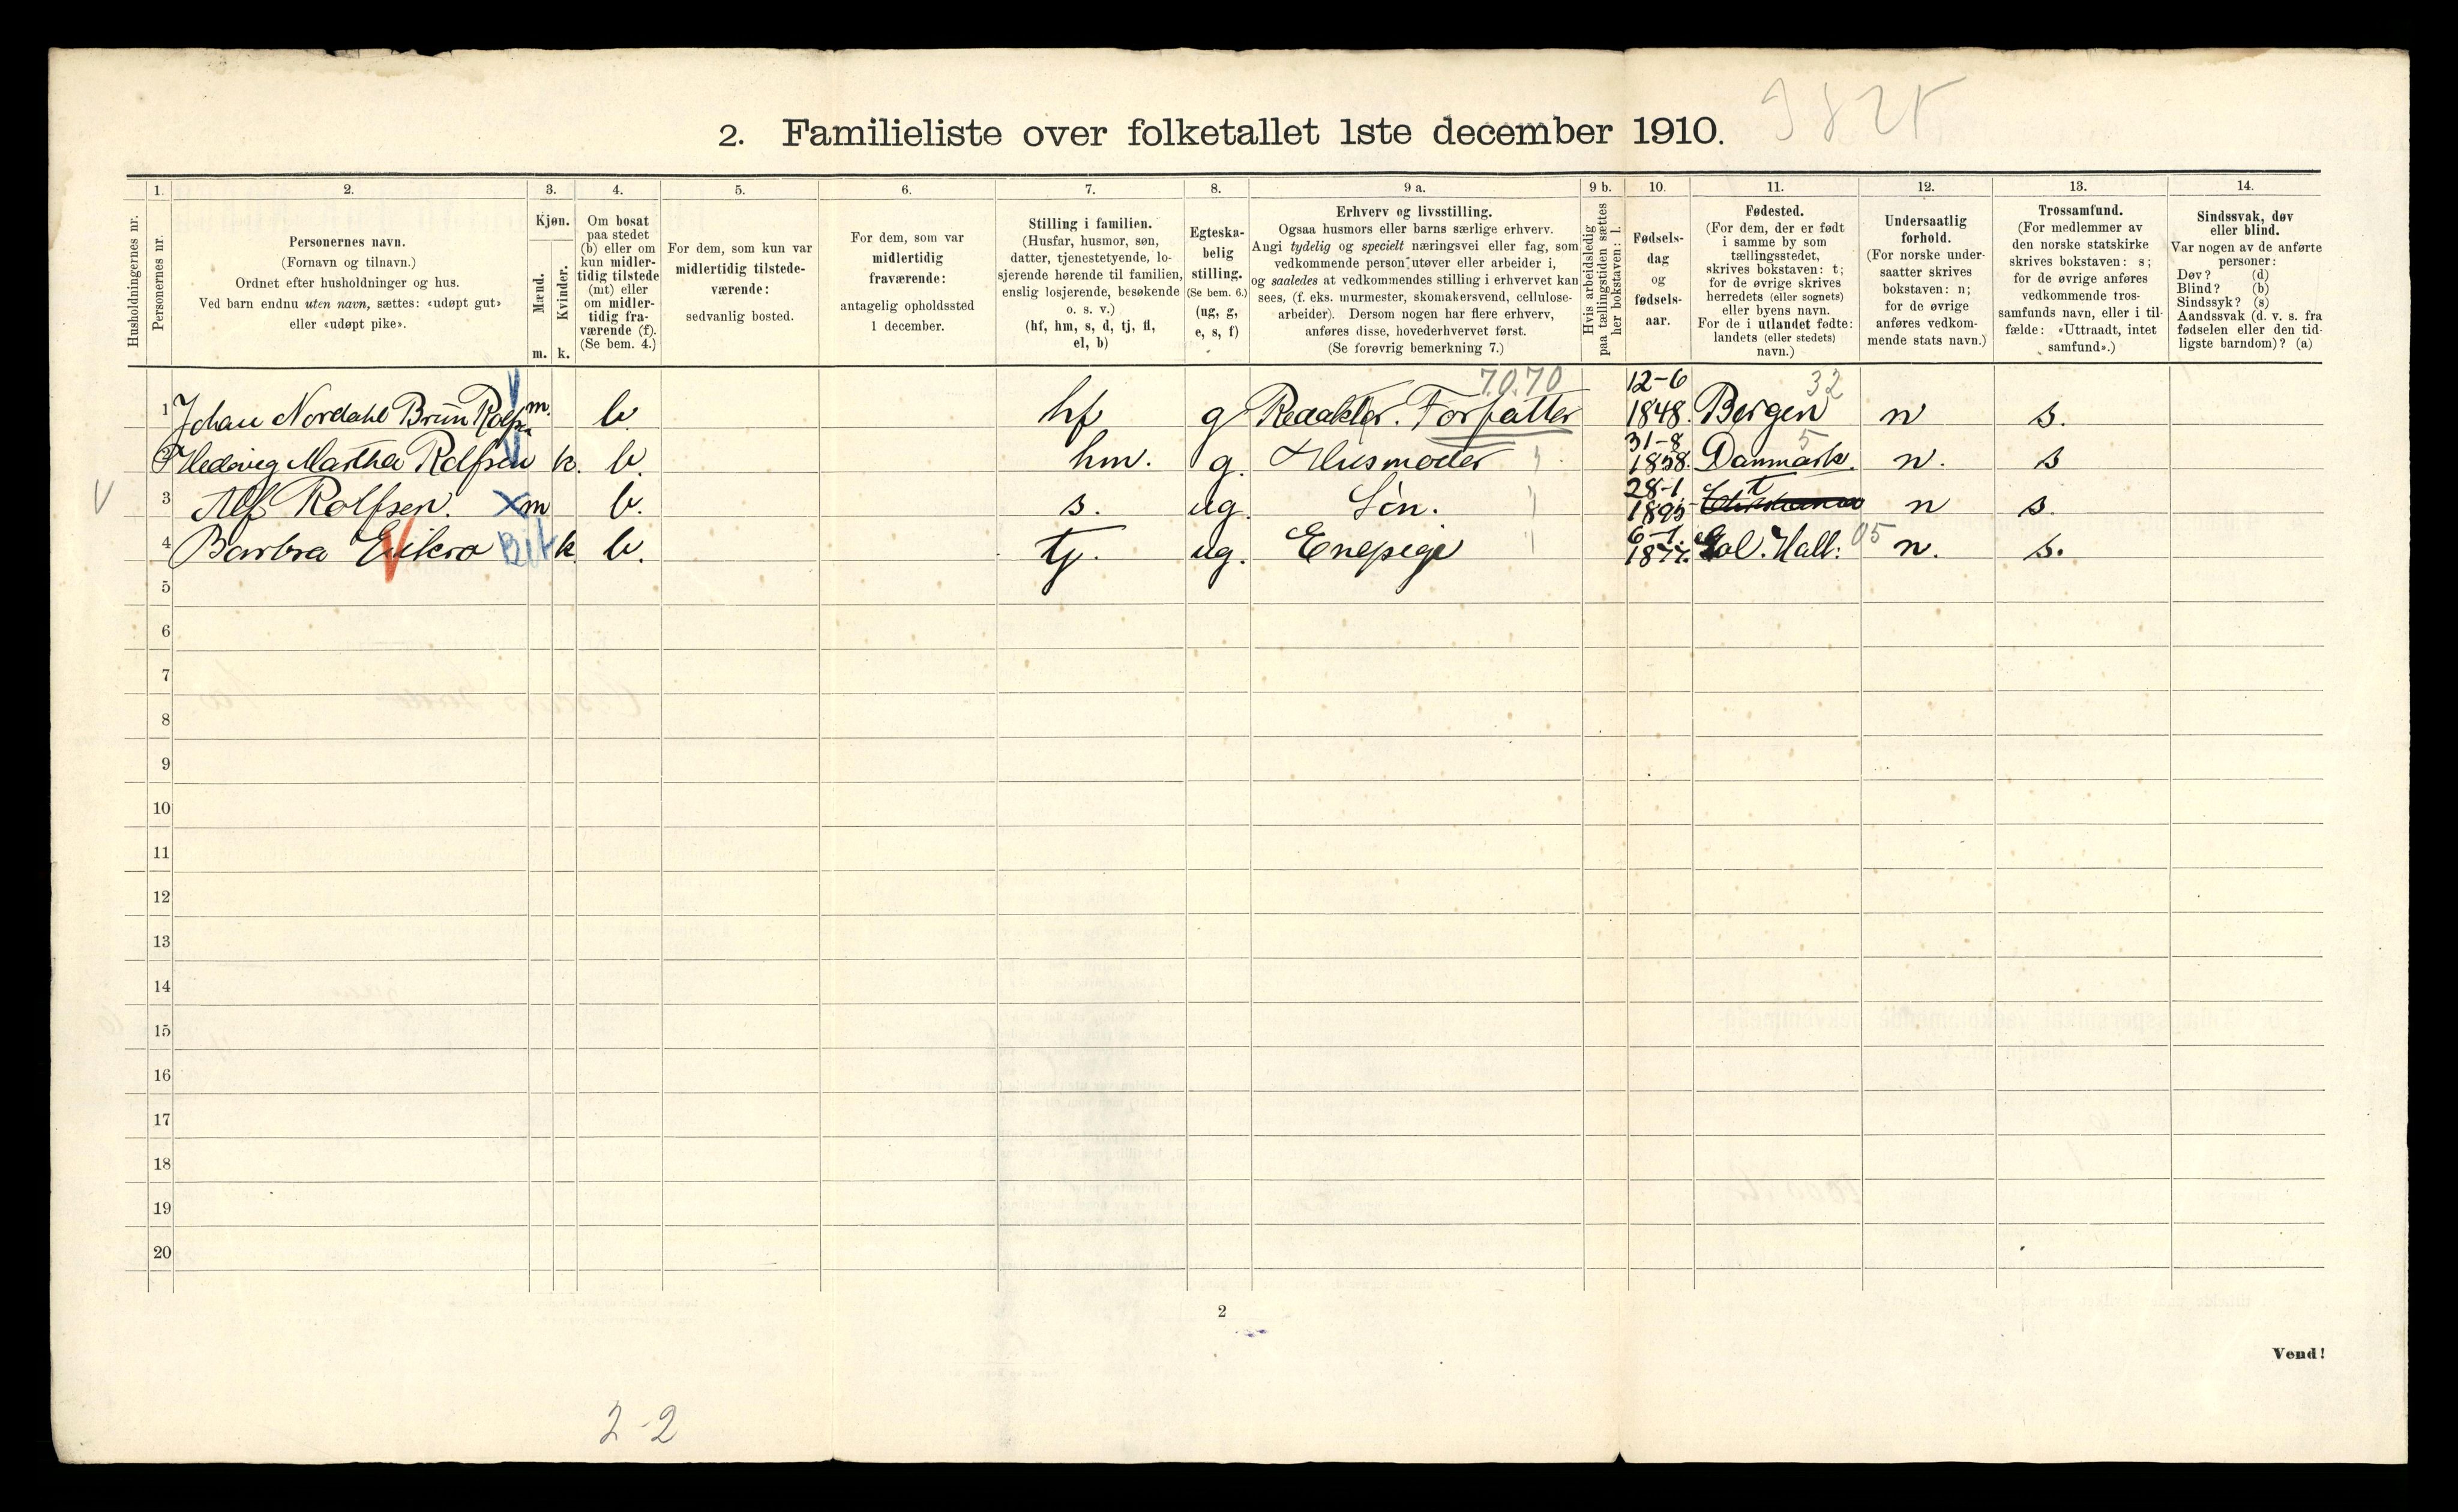 2. Familieliste over folketallet 1ste december 1910. 9825
1. 2. 3. 4. 5. 6. 7. 8. 9 a. 9 b. 10. 11. 12. 13. 14.
Husholdningernes nr.
Personernes nr.
Personernes navn.
(Fornavn og tilnavn.)
Ordnet efter husholdninger og hus.
Ved barn endnu uten navn, sættes: «udøpt gut»
eller «udøpt pike».
Kjøn.
Mænd.
Kvinder.
m. k.
Om bosat
paa stedet
(b) eller om
kun midler-
tidig tilstede
(mt) eller
om midler-
tidig fra-
værende (f).
(Se bem. 4.)
For dem, som kun var
midlertidig tilstede-
værende:
sedvanlig bosted.
For dem, som var
midlertidig
fraværende:
antagelig opholdssted
1 december.
Stilling i familien.
(Husfar, husmor, søn,
datter, tjenestetyende, lo-
sjerende hørende til familien,
enslig losjerende, besøkende
o. s. v.)
(hf, hm, s, d, tj, fl,
el, b)
Egteska-
belig
stilling.
(Se bem. 6.)
(ug, g,
e, s, f)
Erhverv og livsstilling.
Ogsaa husmors eller barns særlige erhverv.
Angi tydelig og specielt næringsvei eller fag, som
vedkommende person utøver eller arbeider i,
og saaledes at vedkommendes stilling i erhvervet kan
sees, (f. eks. murmester, skomakersvend, cellulose-
arbeider). Dersom nogen har flere erhverv,
anføres disse, hovederhvervet først.
(Se forøvrig bemerkning 7.)
Hvis arbeidsledig
paa tællingstiden sættes
her bokstaven: l.
Fødsels-
dag
og
fødsels-
aar.
Fødested.
(For dem, der er født
i samme by som
tællingsstedet,
skrives bokstaven: t;
for de øvrige skrives
herredets (eller sognets)
eller byens navn.
For de i utlandet fødte:
landets (eller stedets)
navn.)
Undersaatlig
forhold.
(For norske under-
saatter skrives
bokstaven: n;
for de øvrige
anføres vedkom-
mende stats navn.)
Trossamfund.
(For medlemmer av
den norske statskirke
skrives bokstaven: s;
for de øvrige anføres
vedkommende tros-
samfunds navn, eller i til-
fælde: «Uttraadt, intet
samfund».)
Sindssvak, døv
eller blind.
Var nogen av de anførte
personer:
Døv? (d)
Blind? (b)
Sindssyk? (s)
Aandssvak (d. v. s. fra
fødselen eller den tid-
ligste barndom)? (a)
7.0.70 12-6 32
1 Johan Nordahl Brun Rolfsen m. b. hf g Redaktør. Forfatter 1848. Bergen n s.
31-8 5
2 Hedevig Martha Rolfsen k. b. hm. g. Husmoder 1858. Danmark. n. s
28-1 t
3 Alf Rolfsen. x m b. s. ug. Søn. 1895 n s.
6-1.
4 Barbra Eikro k b. tj. ug. Enepige 1877. Gol. Hall: 05 n. s.
5
6
7
8
9
10
11
12
13
14
15
16
17
18
19
20
2
Vend!
2-2